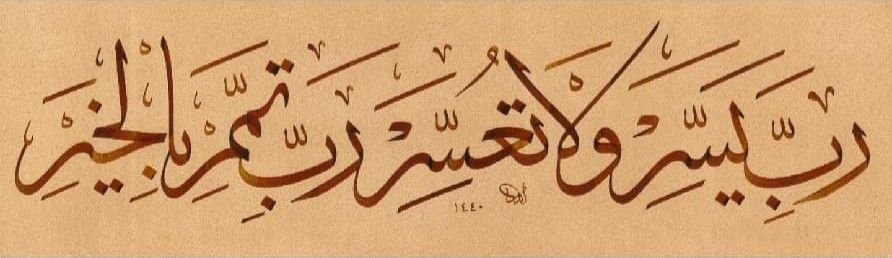 رَبِّ يَسِّرْ وَلَا تُعَسِّرْ رَبِّ تَمِّمْ بِالْخَيْرِ
١٤٤٠